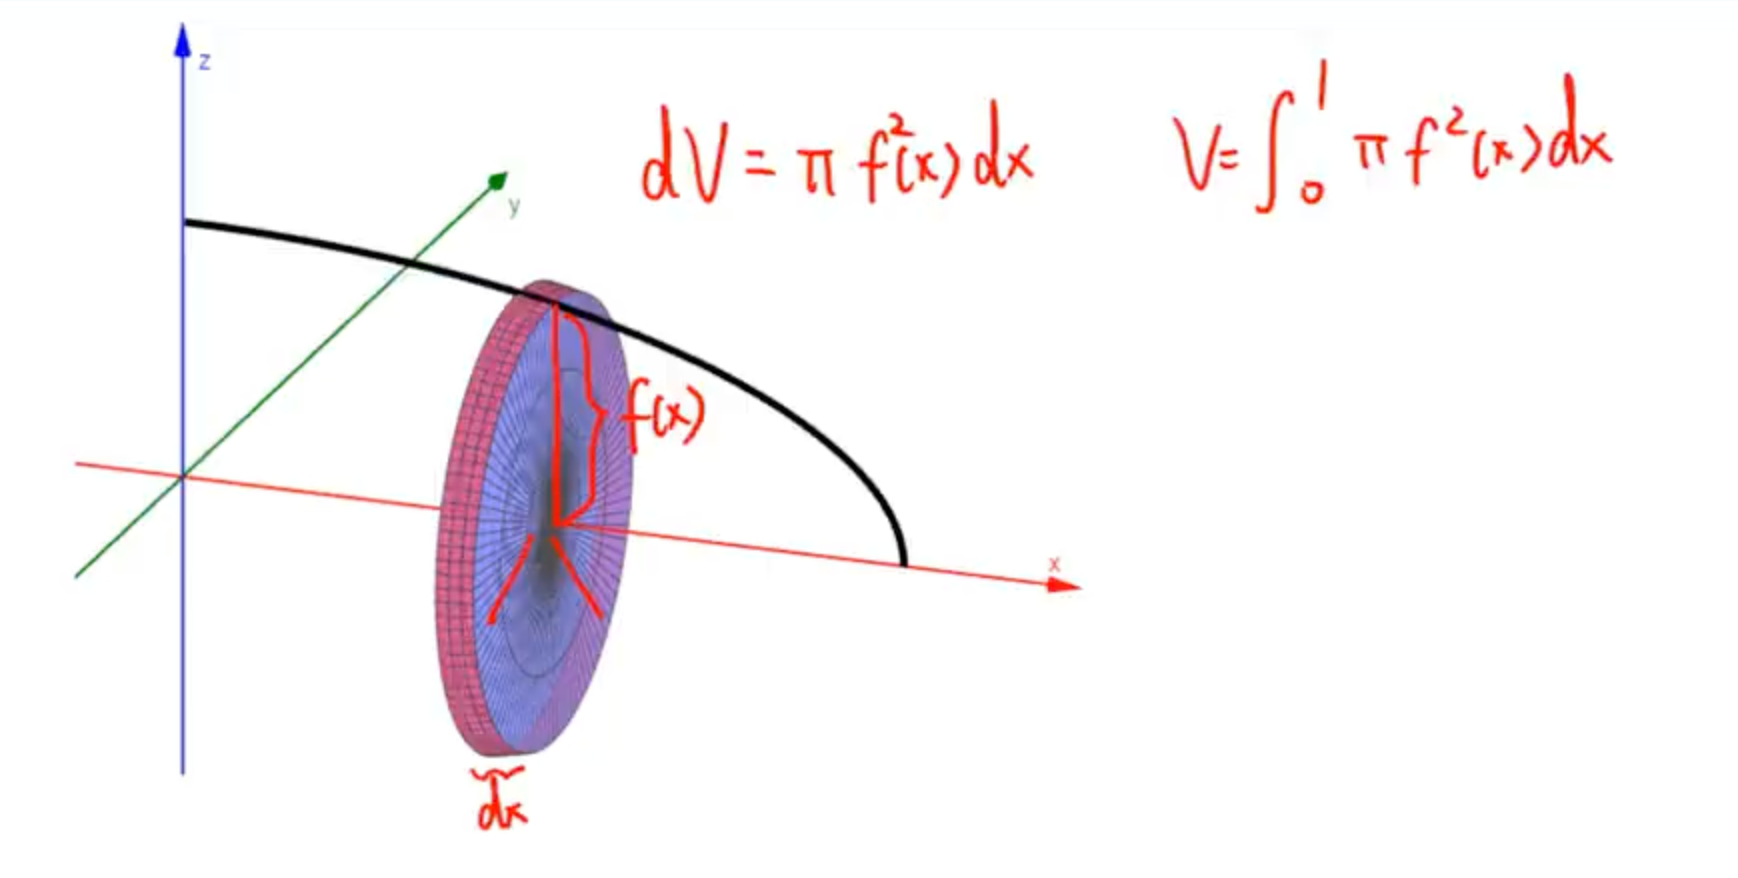 z
dV = π f²(x) dx
V = ∫₀¹ π f²(x) dx
y
f(x)
x
dx